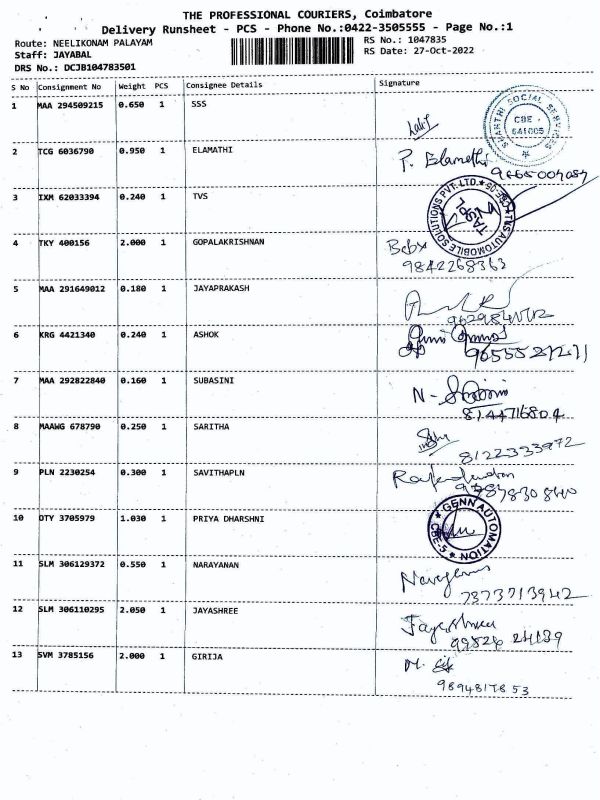 THE PROFESSIONAL COURIERS, Coimbatore
Delivery Runsheet - PCS - Phone No.:0422-3505555 - Page No.:1
Route: NEELIKONAM PALAYAM
RS No.: 1047835
Staff: JAYABAL
RS Date: 27-Oct-2022
DRS No.: DCJB104783501
S No Consignment No Weight PCS Consignee Details Signature
1 MAA 294509215 0.650 1 SSS
SHANTHI SOCIAL SERVICES
CBE - 641005
2 TCG 6036790 0.950 1 ELAMATHI
P. Elamathi
3 IXM 62033394 0.240 1 TVS
TVS AUTOMOBILE SOLUTIONS PVT. LTD.
CBE-05
4 TKY 400156 2.000 1 GOPALAKRISHNAN
9842268363
5 MAA 291649012 0.180 1 JAYAPRAKASH
6 KRG 4421340 0.240 1 ASHOK
7 MAA 292822840 0.160 1 SUBASINI
8144716804
8 MAAWG 678790 0.250 1 SARITHA
8122333972
9 PLN 2230254 0.300 1 SAVITHAPLN
10 OTY 3705979 1.030 1 PRIYA DHARSHNI
GENN AUTOMATION
CBE-5
11 SLM 306129372 0.550 1 NARAYANAN
7373713942
12 SLM 306110295 2.050 1 JAYASHREE
Jayashree
13 SVM 3785156 2.000 1 GIRIJA
9894817853